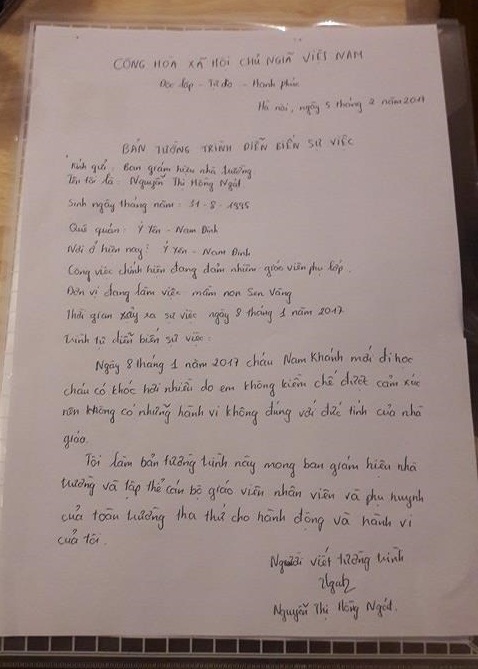 CỘNG HÒA XÃ HỘI CHỦ NGHĨA VIỆT NAM
Độc lập - Tự do - Hạnh phúc
Hà nội, ngày 5 tháng 2 năm 2017
BẢN TƯỜNG TRÌNH DIỄN BIẾN SỰ VIỆC
Kính gửi: Ban giám hiệu nhà trường
Tên tôi là: Nguyễn Thị Hồng Ngát
Sinh ngày tháng năm: 31-8-1995
Quê quán: Ý Yên - Nam Định
Nơi ở hiện nay: Ý Yên - Nam Định
Công việc chính hiện đang đảm nhiệm: giáo viên phụ lớp.
Đơn vị đang làm việc mầm non Sen Vàng
Thời gian xảy ra sự việc ngày 8 tháng 1 năm 2017
Trình tự diễn biến sự việc:
Ngày 8 tháng 1 năm 2017 cháu Nam Khánh mới đi học
cháu có khóc hơi nhiều do em không kiềm chế được cảm xúc
nên không có những hành vi không đúng với đức tính của nhà
giáo.
Tôi làm bản tường trình này mong ban giám hiệu nhà
trường và tập thể cán bộ giáo viên nhân viên và phụ huynh
của toàn trường tha thứ cho hành động và hành vi
của tôi.
Người viết tường trình
Ngát
Nguyễn Thị Hồng Ngát.